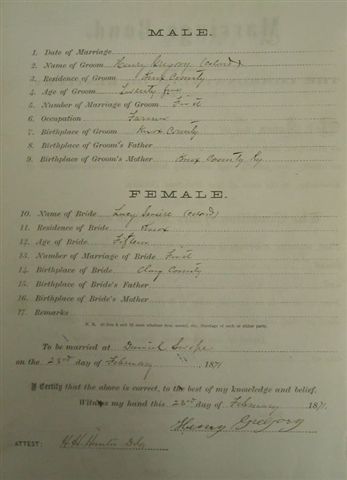 MALE.
1. Date of Marriage
2. Name of Groom Henry Gregory (colord)
3. Residence of Groom Knox County
4. Age of Groom Twenty five
5. Number of Marriage of Groom First
6. Occupation Farmer
7. Birthplace of Groom Knox County
8. Birthplace of Groom's Father
9. Birthplace of Groom's Mother Knox County Ky
FEMALE.
10. Name of Bride Lucy (colord)
11. Residence of Bride Knox
12. Age of Bride Fifteen
13. Number of Marriage of Bride First
14. Birthplace of Bride Clay County
15. Birthplace of Bride's Father
16. Birthplace of Bride's Mother
17. Remarks
To be married at Daniel
on the 23rd day of February 1871
I Certify that the above is correct, to the best of my knowledge and belief.
Witness my hand this 23rd day of February 1871.
Henry Gregory
ATTEST: